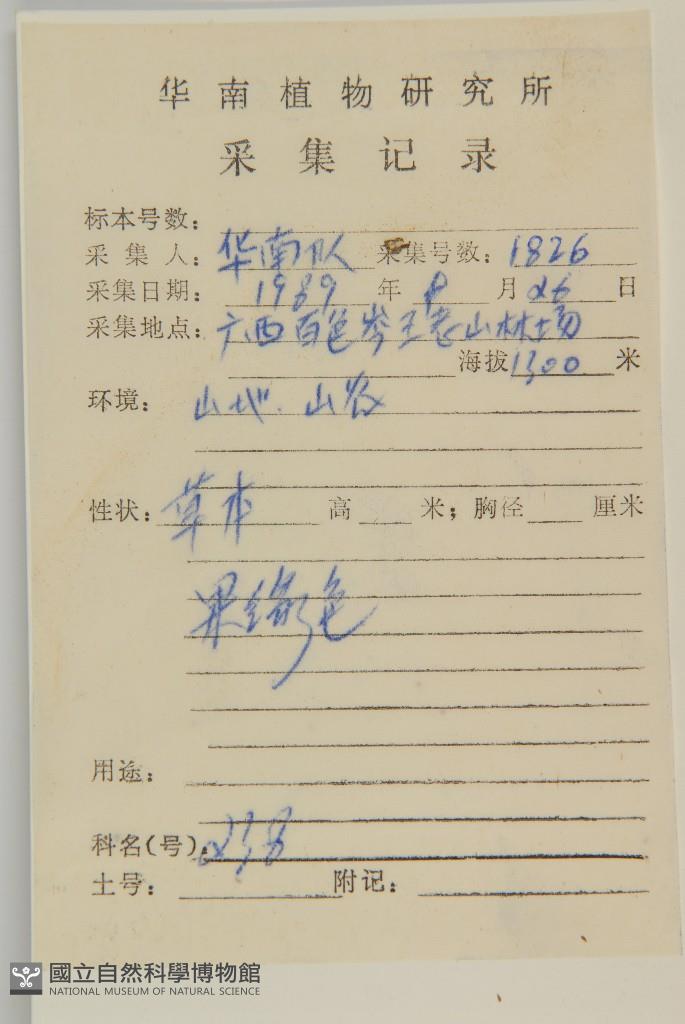 华南植物研究所
采集记录
标本号数：
采集人：华南队 采集号数：1826
采集日期：1989年8月26日
采集地点：广西百色岑王老山林场
海拔1300米
环境：山地．山谷
性状：草本 高 米；胸径 厘米
果绿色
用途：
科名(号)：238
土号： 附记：
國立自然科學博物館
NATIONAL MUSEUM OF NATURAL SCIENCE